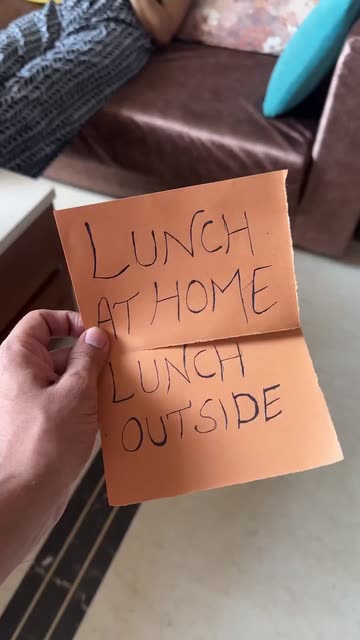 LUNCH
AT HOME
LUNCH
OUTSIDE